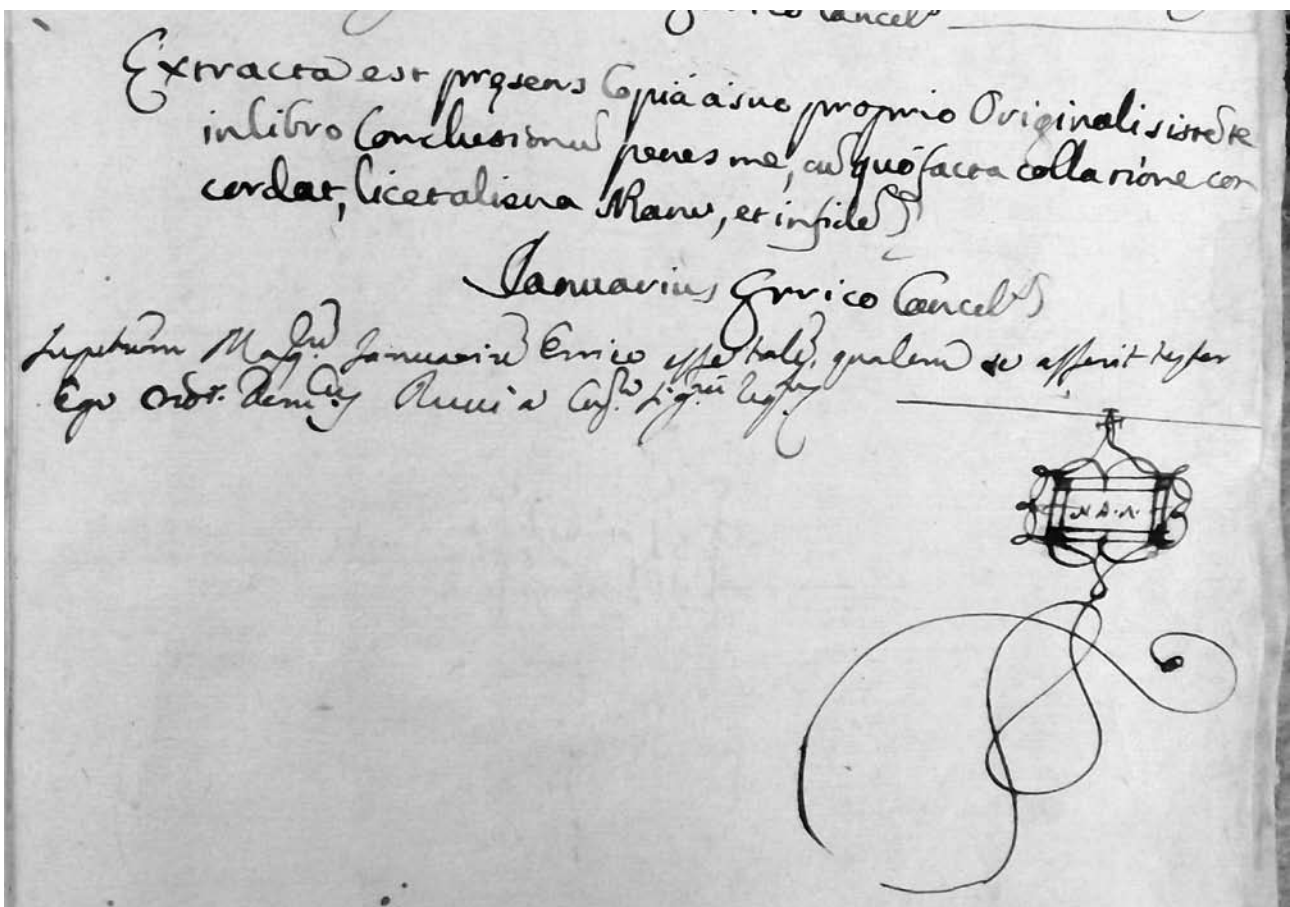 Errico Cancel.
Extracta est presens Copia a suo proprio Originali sistẽte
in libro Conclusionũ penes me, cũ quo facta collatione con
cordat, licet aliena Manu, et in fidẽ
Januarius Errico Cancel.
Mag. Januariũ Errico esse talẽ, qualem se asserit testor
Ego Not.
N.D.A.